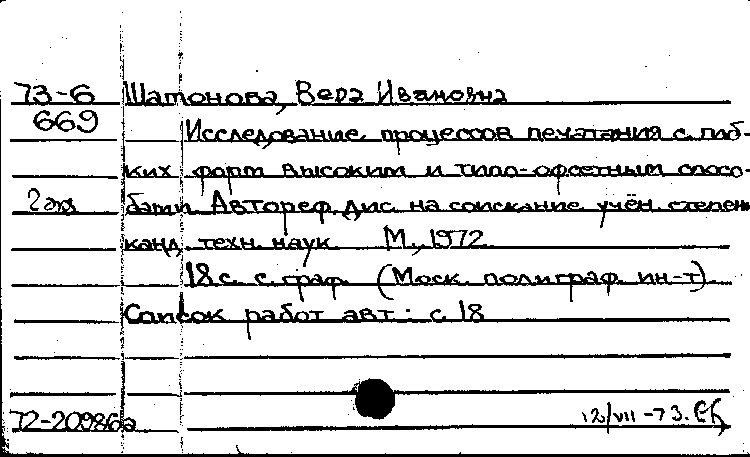 73-6 Шапонова, Вера Ивановна
669 Исследование процессов печатания с гиб-
ких форм высоким и типо-офсетным спосо-
2 экз бами. Автореф. дис. на соискание учён. степени
канд. техн. наук. М., 1972.
18 с. с граф. (Моск. полиграф. ин-т).
Список работ авт.: с. 18
72-20986а 12/VII-73.